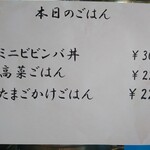 本日のごはん
ミニビビンバ丼 ¥30
高菜ごはん ¥2
たまごかけごはん ¥22